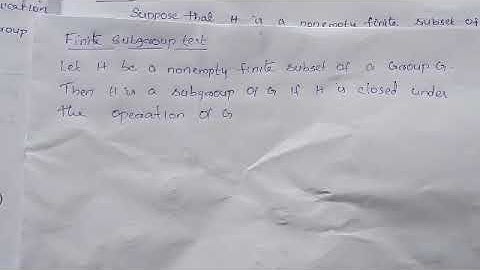 ication
Suppose that H is a nonempty finite subset of
roup
Finite Subgroup test
Let H be a nonempty finite subset of a Group G.
Then H is a subgroup of G if H is closed under
the operation of G
)